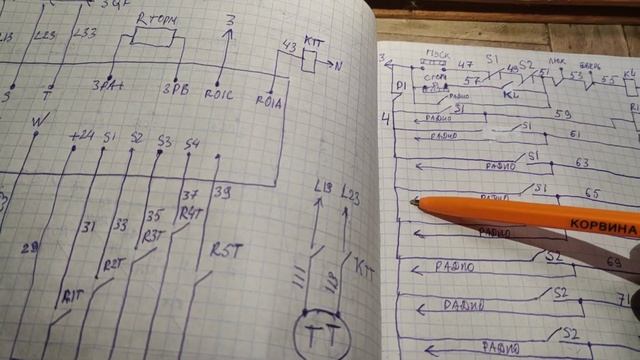 L23 L33
Rторм
3
43
КТТ
N
S
T
3PA+
3PB
R01C
R01A
W
+24 S1 S2 S3 S4
29
31
33
35
37
39
R1T
R2T
R3T
R4T
R5T
L13 L23
111
КТТ
Т Т
3
ПУСК
47
S1
49
S2
51
53
55
СТОП
57
KL
P1
4
РАДИО
S1
59
РАДИО
S1
61
РАДИО
S1
63
РАДИО
S1
65
РАДИО
КОРВИНА
РАДИО
S2
69
РАДИО
S2
71
РАДИО
S2
РАДИО